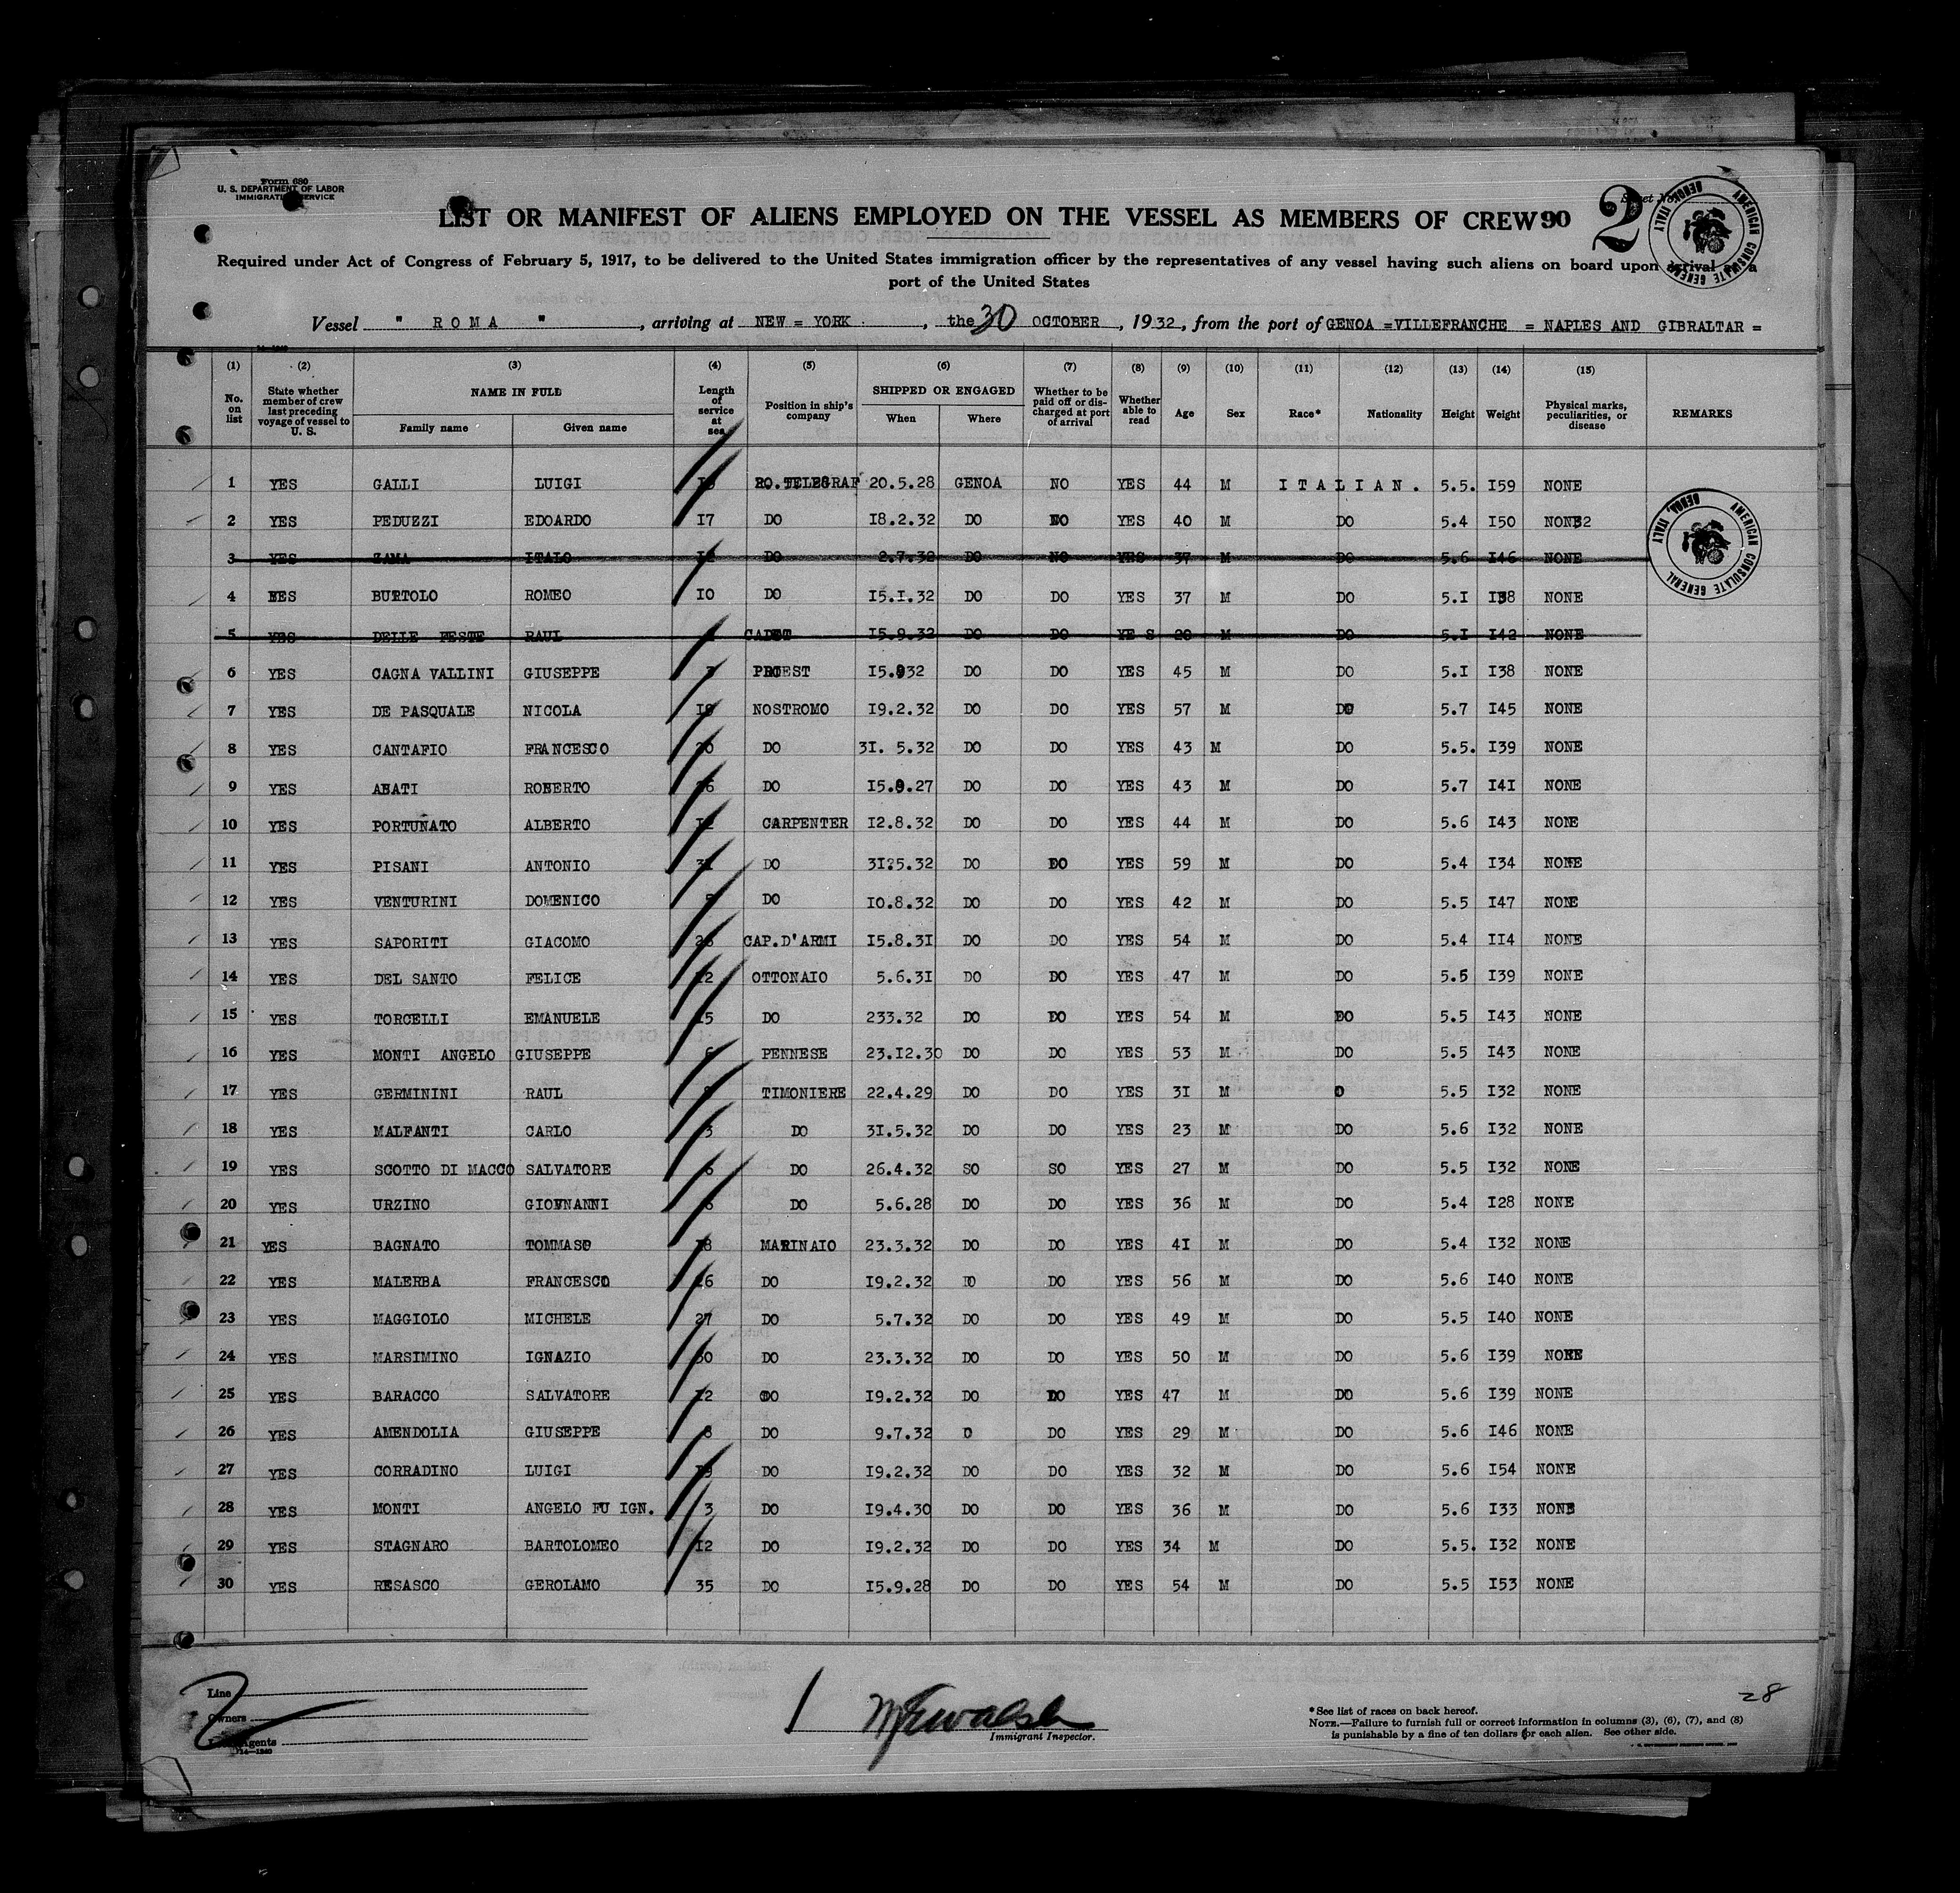 Form 680
U. S. DEPARTMENT OF LABOR
IMMIGRATION SERVICE
LIST OR MANIFEST OF ALIENS EMPLOYED ON THE VESSEL AS MEMBERS OF CREW 90 2
AMERICAN CONSULATE GENERAL GENOA, ITALY
Required under Act of Congress of February 5, 1917, to be delivered to the United States immigration officer by the representatives of any vessel having such aliens on board upon arrival a
port of the United States
Vessel " ROMA ", arriving at NEW = YORK, the 30 OCTOBER, 1932, from the port of GENOA =VILLEFRANCHE = NAPLES AND GIBRALTAR =
(1) (2) (3) (4) (5) (6) (7) (8) (9) (10) (11) (12) (13) (14) (15)
No. on list State whether member of crew last preceding voyage of vessel to U. S. NAME IN FULL Family name Given name Length of service at sea Position in ship's company SHIPPED OR ENGAGED When Where Whether to be paid off or discharged at port of arrival Whether able to read Age Sex Race* Nationality Height Weight Physical marks, peculiarities, or disease REMARKS
1 YES GALLI LUIGI 20.5.28 GENOA NO YES 44 M ITALIAN. 5.5. I59 NONE
2 YES PEDUZZI EDOARDO I7 DO I8.2.32 DO NO YES 40 M DO 5.4 I50
3 YES ZAMA ITALO DO 2.7.32 DO NO YES 37 M DO 5.6 I46 NONE
4 YES BURTOLO ROMEO IO DO I5.I.32 DO DO YES 37 M DO 5.I I38 NONE
5 YES DELLE FESTE RAUL CADET I5.9.32 DO DO YE S 20 M DO 5.I I42 NONE
6 YES CAGNA VALLINI GIUSEPPE 3 I5.932 DO DO YES 45 M DO 5.I I38 NONE
7 YES DE PASQUALE NICOLA NOSTROMO I9.2.32 DO DO YES 57 M DO 5.7 I45 NONE
8 YES CANTAFIO FRANCESCO DO 3I. 5.32 DO DO YES 43 M DO 5.5. I39 NONE
9 YES ABATI ROBERTO DO I5.9.27 DO DO YES 43 M DO 5.7 I4I NONE
10 YES PORTUNATO ALBERTO I2 CARPENTER I2.8.32 DO DO YES 44 M DO 5.6 I43 NONE
11 YES PISANI ANTONIO DO 3I?5.32 DO DO YES 59 M DO 5.4 I34 NONE
12 YES VENTURINI DOMENICO DO IO.8.32 DO DO YES 42 M DO 5.5 I47 NONE
13 YES SAPORITI GIACOMO CAP.D'ARMI I5.8.3I DO DO YES 54 M DO 5.4 II4 NONE
14 YES DEL SANTO FELICE OTTONAIO 5.6.3I DO DO YES 47 M DO 5.5 I39 NONE
15 YES TORCELLI EMANUELE DO 233.32 DO DO YES 54 M DO 5.5 I43 NONE
16 YES MONTI ANGELO GIUSEPPE PENNESE 23.I2.30 DO DO YES 53 M DO 5.5 I43 NONE
17 YES GERMININI RAUL TIMONIERE 22.4.29 DO DO YES 3I M O 5.5 I32 NONE
18 YES MALFANTI CARLO 3 DO 3I.5.32 DO DO YES 23 M DO 5.6 I32 NONE
19 YES SCOTTO DI MACCO SALVATORE 6 DO 26.4.32 SO SO YES 27 M DO 5.5 I32 NONE
20 YES URZINO GIOVNANNI DO 5.6.28 DO DO YES 36 M DO 5.4 I28 NONE
21 YES BAGNATO TOMMASO MARINAIO 23.3.32 DO DO YES 4I M DO 5.4 I32 NONE
22 YES MALERBA FRANCESCO DO I9.2.32 DO DO YES 56 M DO 5.6 I40 NONE
23 YES MAGGIOLO MICHELE 27 DO 5.7.32 DO DO YES 49 M DO 5.5 I40 NONE
24 YES MARSIMINO IGNAZIO 30 DO 23.3.32 DO DO YES 50 M DO 5.6 I39 NONE
25 YES BARACCO SALVATORE DO I9.2.32 DO DO YES 47 M DO 5.6 I39 NONE
26 YES AMENDOLIA GIUSEPPE 8 DO 9.7.32 O DO YES 29 M DO 5.6 I46 NONE
27 YES CORRADINO LUIGI I9 DO I9.2.32 DO DO YES 32 M DO 5.6 I54 NONE
28 YES MONTI ANGELO FU IGN. 3 DO I9.4.30 DO DO YES 36 M DO 5.6 I33 NONE
29 YES STAGNARO BARTOLOMEO I2 DO I9.2.32 DO DO YES 34 M DO 5.5. I32 NONE
30 YES RESASCO GEROLAMO 35 DO I5.9.28 DO DO YES 54 M DO 5.5 I53 NONE
AMERICAN CONSULATE GENERAL GENOA, ITALY
Line
Owners
Agents
14—1240
Immigrant Inspector.
28
*See list of races on back hereof.
NOTE.—Failure to furnish full or correct information in columns (3), (6), (7), and (8)
is punishable by a fine of ten dollars for each alien. See other side.